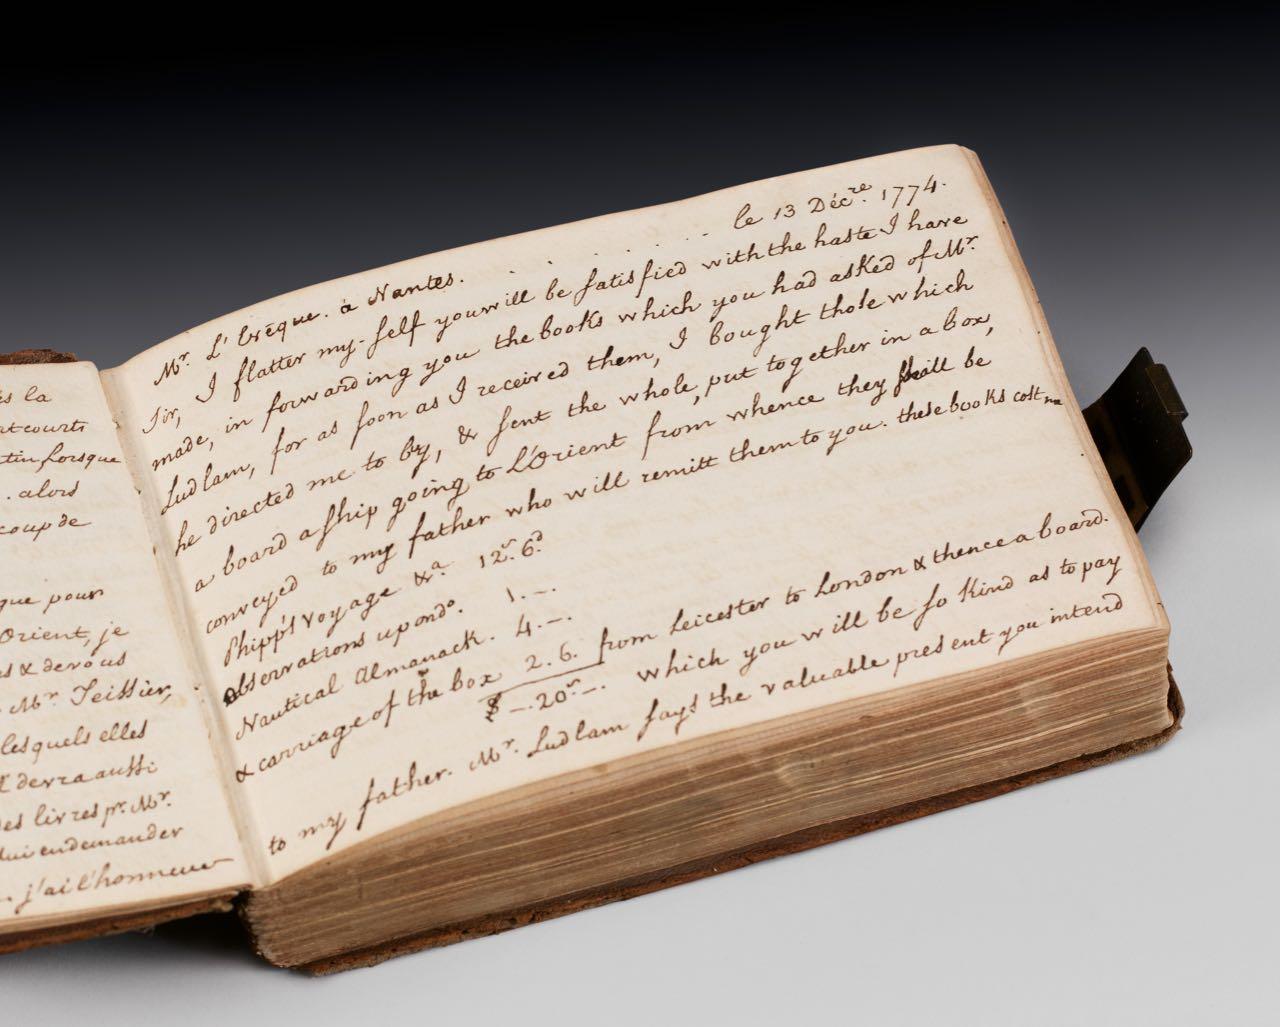 is la
at courts
tin forsque
. alors
coup de
que pour
Orient, je
es & dévous
Mr. Teissier,
lesquels elles
devra aussi
des livres pr. Mr.
lui en demander
. j'ai l'honneur
le 13 Décre. 1774.
Mr. L'Evêque. à Nantes. . . . . . . .
Sir, I flatter my-self you will be satisfied with the haste I have
made, in forwarding you the books which you had asked of Mr.
Ludlam, for as soon as I received them, I bought those which
he directed me to by, & sent the whole, put together in a box,
a board a ship going to L'Orient from whence they shall be
conveyed to my father who will remitt them to you. these books cost me
Phipp's voyage &a. 12s. 6d.
Observations upon do. 1. -.
Nautical Almanack. 4. -.
& carriage of the box 2. 6. from Leicester to London & thence a board.
-. 20s -. which you will be so kind as to pay
to my father. Mr. Ludlam says the valuable present you intend